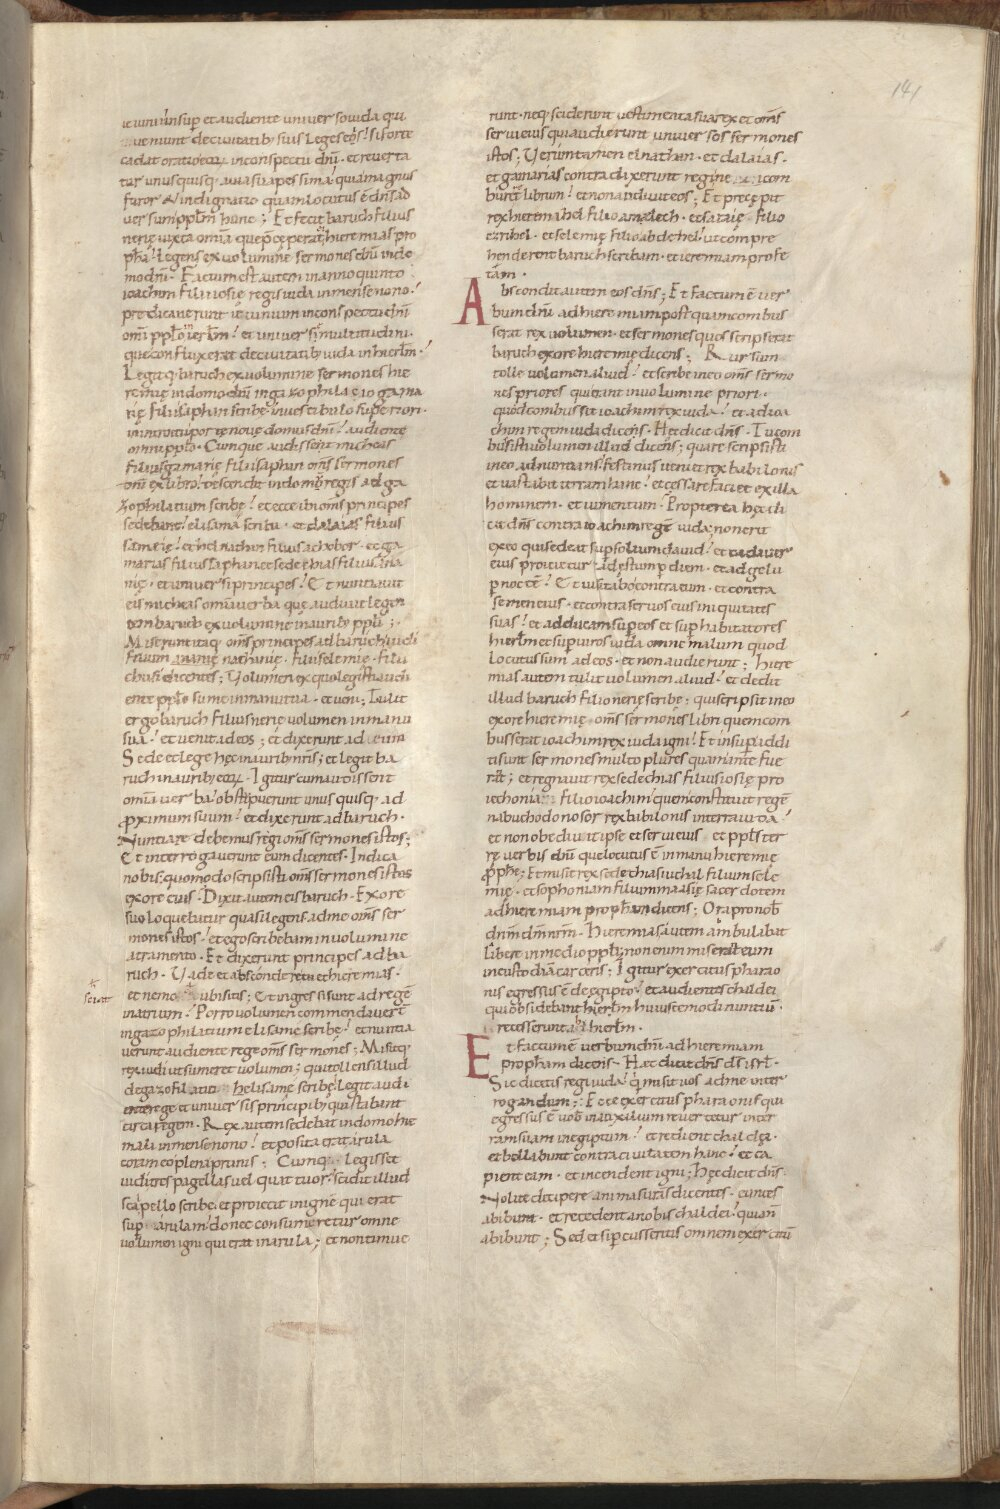 141
ieiunii insup et audiente universo iuda qui
veniunt de civitatib; suis Leges eis; si forte
cadat oratio eorum in conspectu dñi · et reverta
tur unusquisq; a via sua pessima; quia magnus
furor & indignatio quam locutus ē dñs ad
versum pplm hunc; Et fecit baruch filius
nerię iuxta omnia quę pręceperat ei hieremias pro
pha; legens ex volumine sermones dñi in do
mo dñi · Factum est autem in anno quinto
ioachim filii iosie regis iuda in mense nono ·
predicaverunt ieiunium in conspectu dñi
omi pplo in ierlm · et universę multitudini ·
que confluxerat de civitatib; iuda in hierlm ·
Legitq; baruch ex volumine sermones hie
remię in domo dñi in gazophilacio gama
rię filii saphan scribę · in vestibulo superiori ·
in introitu portę novę domus dñi · audiente
omni pplo · Cunque audisset micheas
filius gamarię filii saphan oms sermones
dñi ex libro · descendit in domum regis ad ga
zophilatium scribę · et ecce ibi oms principes
sedebant · elisama scriba · et dalaias filius
sameię · et helnathan filius achobor · et ga
marias filius saphan · et sedechias filius ana
nię · et universi principes · Et nuntiavit
eis micheas omnia verba quę audivit legen
tem baruch ex volumine in aurib; ppli;
Miserunt itaq; oms principes ad baruch iudi
filium nathanię · filii selemię · filii
chusi dicentes; Volumen ex quo legisti audi
ente pplo sume in manu tua · et veni; Tulit
ergo baruch filius nerię volumen in manu
sua · et venit ad eos; et dixerunt ad eum
Sede et lege hec in aurib; nris; et legit ba
ruch in aurib; eorum · Igitur cum audissent
omnia verba obstipuerunt unusquisq; ad
proximum suum · et dixerunt ad baruch ·
Nuntiare debemus regi oms sermones istos;
Et interrogaverunt eum dicentes · Indica
nobis quomodo scripsisti oms sermones istos
ex ore eius · Dixit autem eis baruch · Ex ore
suo loquebatur quasi legens ad me oms ser
mones istos · et ego scribebam in volumine
atramento · Et dixerunt principes ad ba
ruch · Vade et abscondere tu et hieremias ·
et nemo ubi sitis; Et ingressi sunt ad regē
sciat
in atrium · Porro volumen commendaverūt
in gazophilatium elisame scribę · et nuntia
verunt audiente rege oms sermones; Misitq;
rex iudi ut sumeret volumen; qui tollens illud
de gazofilatio helisame scribę legit audi
ente rege et universis principib; qui stabant
circa regem · Rex autem sedebat in domo hie
mali in mense nono · et posita erat arula
coram eo plena prunis; Cumq; legisset
iudi tres pagellas vel quattuor · scidit illud
scalpello scribę · et proiecit in ignē qui erat
sup arulam · donec consumeretur omne
volumen igni qui erat in arula; et non timue
runt · neq; sciderunt vestimenta sua rex et oms
servi eius qui audierunt universos sermones
istos; Veruntamen elnathan · et dalaias ·
et gamarias contradixerunt regi ne com
bureret librum · et non audivit eos; Et pręcepit
rex hieremahel filio amalech · et saraię · filio
ezrihel · et selemię filio abdehel · ut compre
henderent baruch scribam · et ieremiam profe
tam ·
Abscondit autem eos dñs; Et factum ē ver
bum dñi ad hieremiam postquam combus
serat rex volumen · et sermones quos scripserat
baruch ex ore hieremię dicens; Rursum
tolle volumen aliud · et scribe in eo oms sermo
nes priores qui erant in volumine priori ·
quod combussit ioachim rex iuda · et ad ioa
chim regem iuda dicens · Hęc dicit dñs · Tu com
busisti volumen illud dicens; quare scripsisti
in eo adnuntians festinus veniet rex babilonis
et vastabit terram hanc · et cessare faciet ex illa
hominem · et iumentum · Propterea hęc di
cit dñs contra ioachim regē iuda; non erit
ex eo qui sedeat sup solium david · et cadaver
eius proicietur ad ęstum p diem · et ad gelu
p noctē · Et visitabo contra eum · et contra
semen eius · et contra servos eius iniquitates
suas · et adducam sup eos et sup habitatores
hierlm et sup viros iuda omne malum quod
locutus sum ad eos · et non audierunt; Hiere
mias autem tulit volumen aliud · et dedit
illud baruch filio nerię scribę; qui scripsit in eo
ex ore hieremię · oms sermones libri quem com
busserat ioachim rex iuda igni · Et insup addi
ti sunt sermones multo plures quam ante fue
rāt; et regnavit rex sedechias filius iosię pro
iechonia filio ioachim · quem constituit regē
nabuchodonosor rex babilonis in terra iuda ·
et non obedivit ipse et servi eius et ppls ter
rę verbis dñi que locutus ē in manu hieremię
pphę; Et misit rex sedechias iuchal filium sele
mię · et sophoniam filium maasię sacerdotem
ad hieremiam propham dicens; Ora pro nob
dñm dm nrm · Hieremias autem ambulabat
libere in medio ppli; non enim miserat eum
in custodiā carceris; Igitur exercitus pharao
nis egressus ē de ęgipto · et audientes chaldei
qui obsidebant hierlm huiuscemodi nuntiū ·
recesserunt ab hierlm ·
Et factum ē verbum dñi ad hieremiam
propham dicens · Hęc dicit dñs ds isrl ·
Sic dicetis regi iuda · qi misit vos ad me inter
rogandum; Ecce exercitus pharaonis qui
egressus ē vob in auxilium revertetur in ter
ram suam in egiptum · et redient chaldęi ·
et bellabunt contra civitatem hanc · et ca
pient eam · et incendent igni; Hęc dicit dñs ·
Nolite decipere animas vras dicentes · euntes
abibunt · et recedent a nobis chaldei · quia n
abibunt; Sed et si pcusseritis omnem exercitū